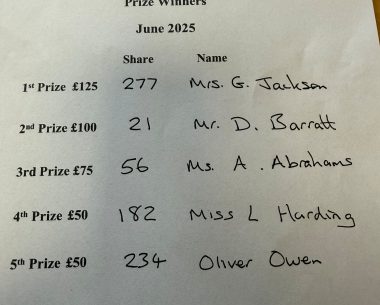 Prize Winners
June 2025
Share Name
1st Prize £125 277 Mrs. G. Jackson
2nd Prize £100 21 Mr. D. Barratt
3rd Prize £75 56 Ms. A. Abrahams
4th Prize £50 182 Miss L Harding
5th Prize £50 234 Oliver Owen